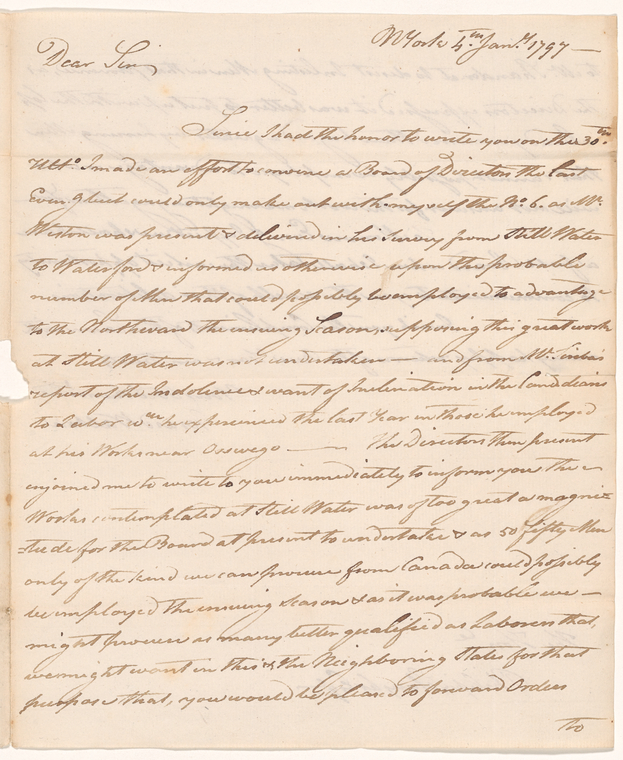 NYork 4.th Jan.y 1797 —
Dear Sir
Since I had the honor to write you on the 30.th
Ult.o I made an effort to convine a Board of Directors the last
Even.g but could only make out with myself the No. 6. as Mr.
Weston was present & delivered in his Survey from Still Water
to Waterford & informed us otherwise upon the probable
number of Men that could possibly be employed to advantage
to the Northward the ensuing Season, supposing this great work
at Still Water was not undertaken — and from Mr.
report of the Indolence & want of Inclination in the Canadians
to Labor w.ch he experienced the last Year in those he employed
at his Works near Osswego — — The Directors then present
enjoined me to write to you immediately to inform you the
Works contemplated at Still Water was of too great a magni=
=tude for the Board at present to undertake & as 50/fifty Men
only of the kind we can procure from Canada could possibly
be employed the ensuing Season & as it was probable we —
might procure as many better qualified as Laborers that,
we might want in this & the Neighboring States for that
purpose that, you would be pleased to forward Orders
to